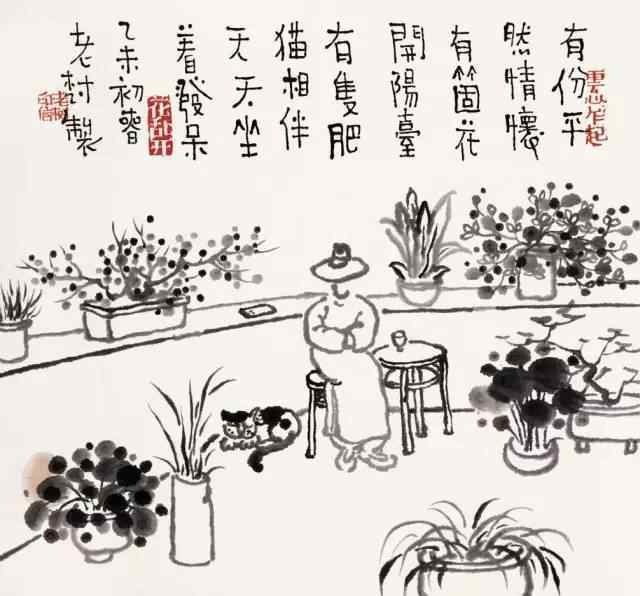 有份平
然情懷
有箇花
開陽臺
有隻肥
猫相伴
天天坐
着發呆
花乱开
乙未初春
老村製